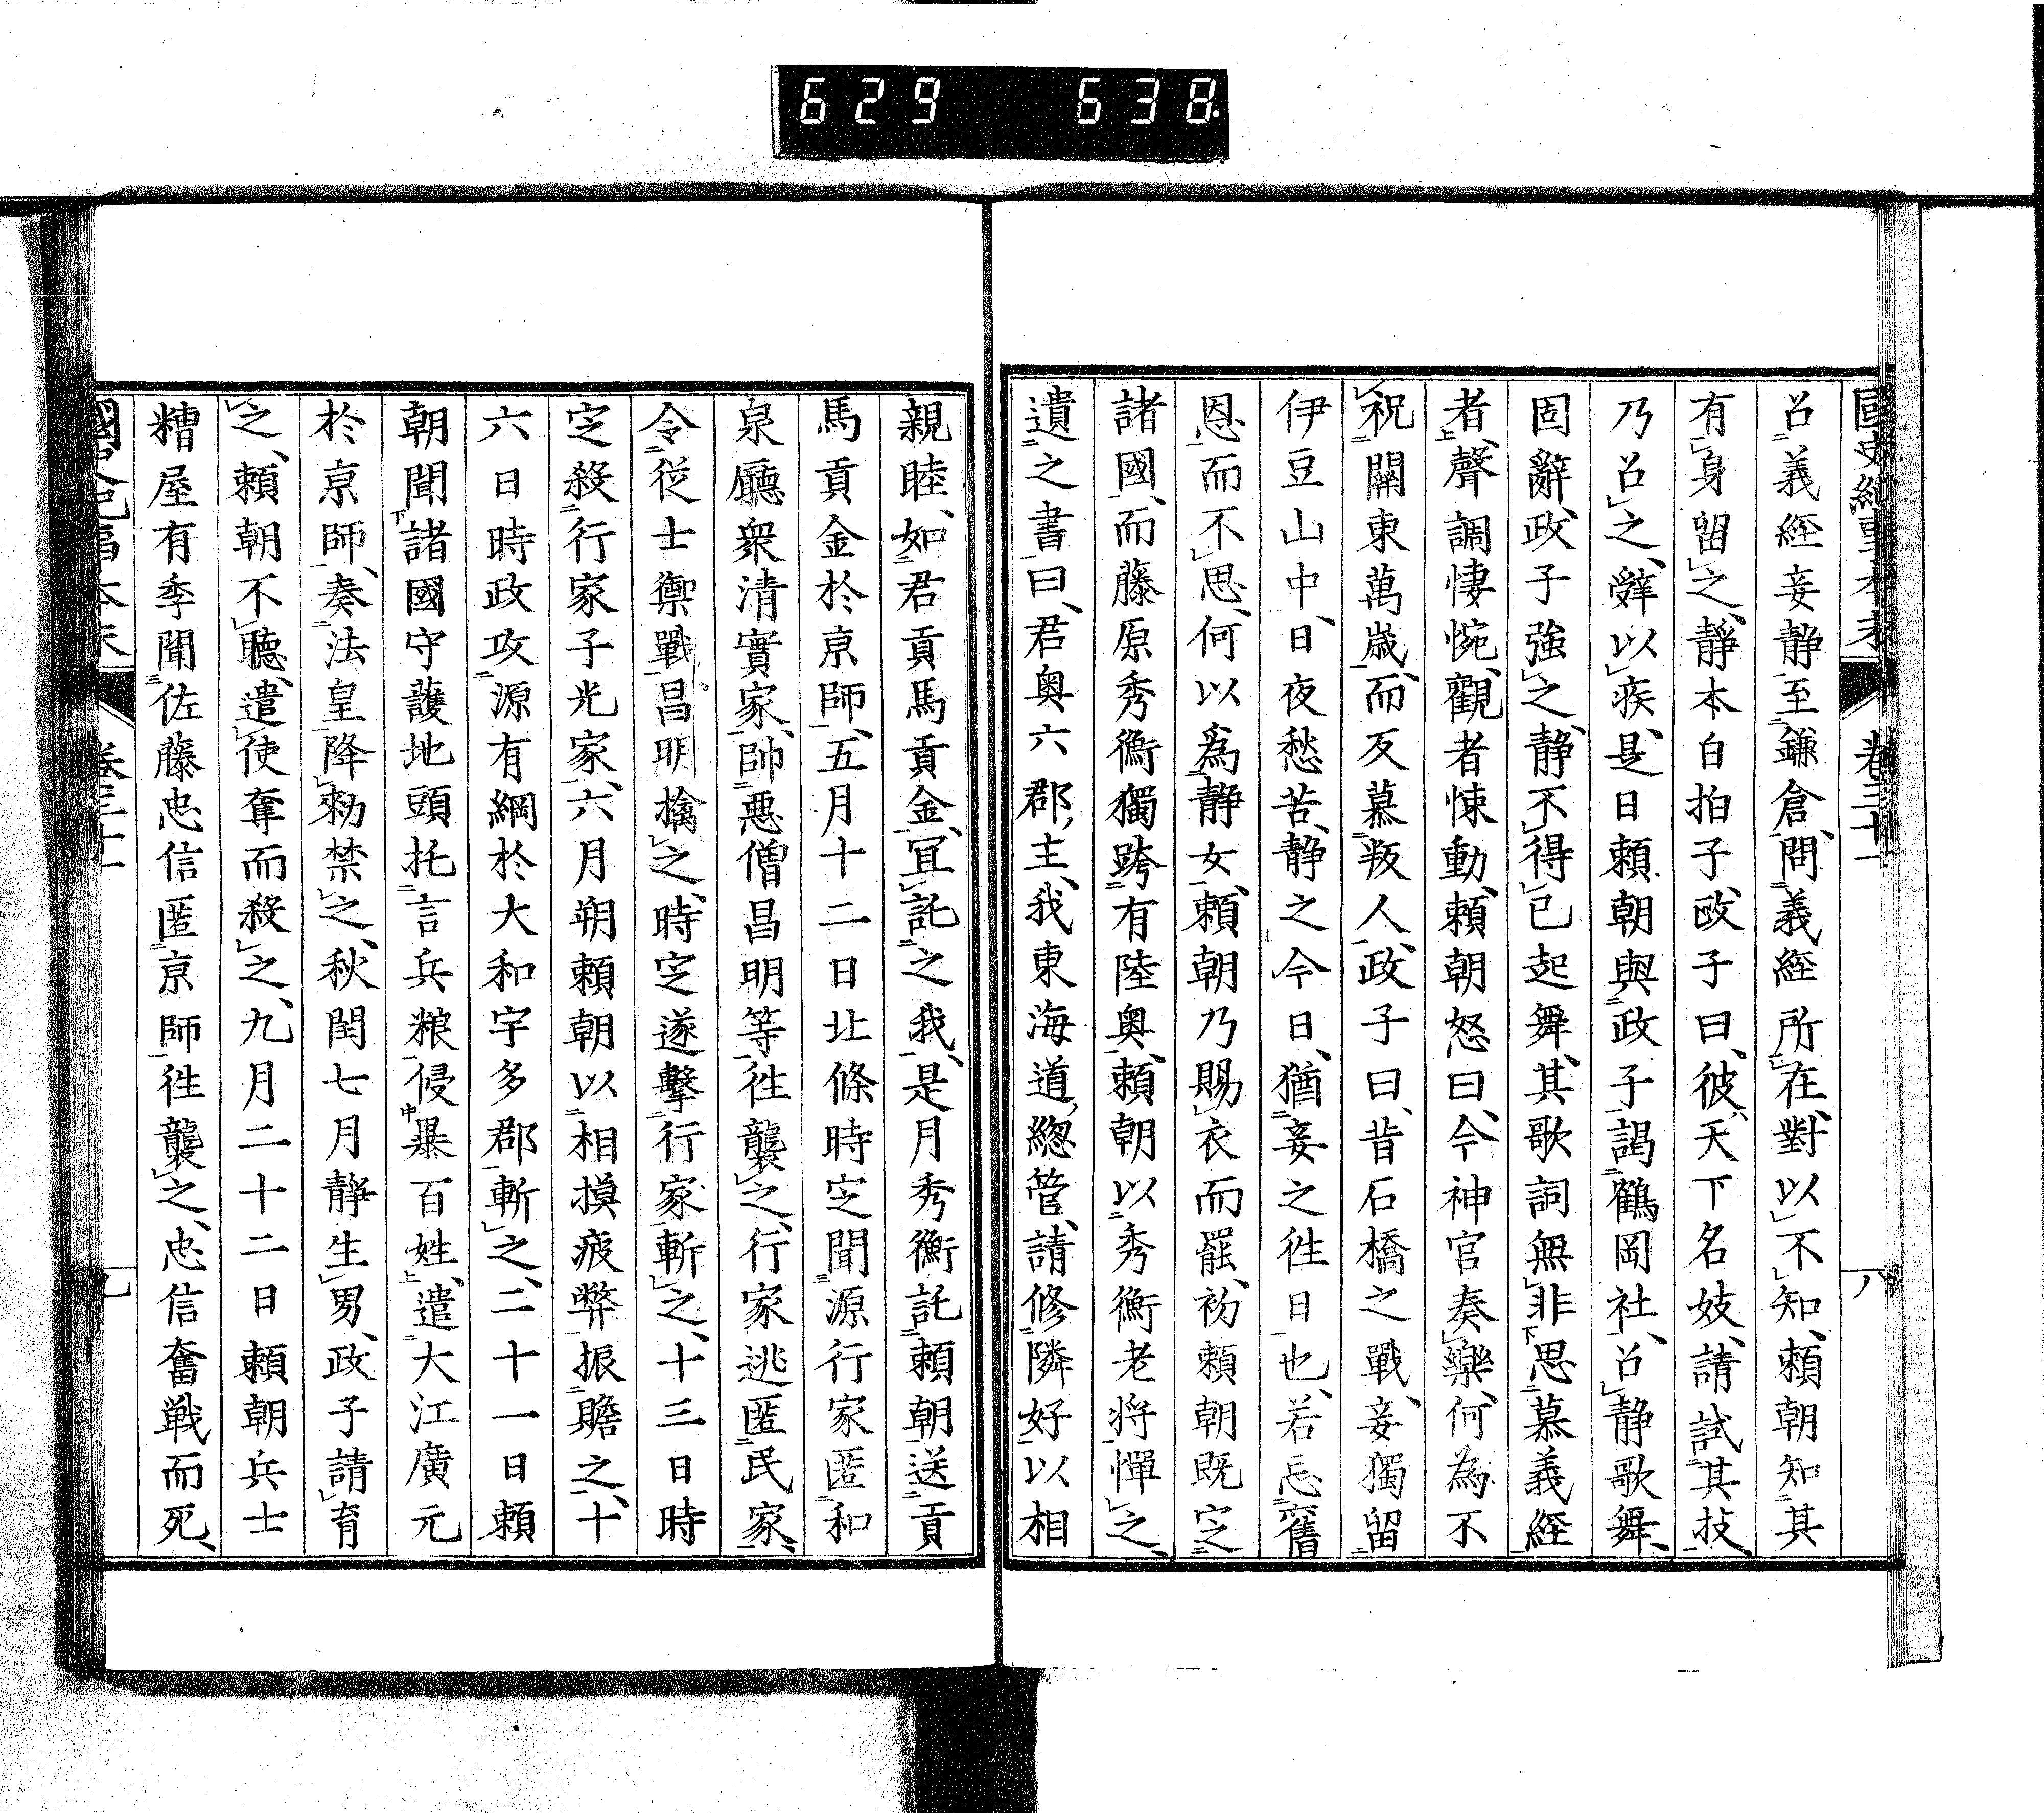 629 638.
國史紀事本末 卷三十一 八
召義經妾静至鎌倉、問義經所在、對以不知、頼朝知其
有身留之、静本白拍子、政子曰、彼天下名妓、請試其技、
乃召之、辤以疾、是日頼朝與政子謁鶴岡社、召静歌舞、
固辭、政子強之、静不得已起舞、其歌詞無非思慕義經
者、聲調悽惋、觀者悚動、頼朝怒曰、今神官奏樂、何為不
祝關東萬歳、而反慕叛人、政子曰、昔石橋之戰、妾獨留
伊豆山中、日夜愁苦、静之今日、猶妾之徃日也、若忘舊
恩而不思、何以爲静女、頼朝乃賜衣而罷、初頼朝既定
諸國、而藤原秀衡獨跨有陸奥、頼朝以秀衡老将憚之、
遺之書曰、君奥六郡主、我東海道總管、請修隣好以相
親睦、如君貢馬貢金、冝託之我、是月秀衡託頼朝送貢
馬貢金於京師、五月十二日北條時定聞源行家匿和
泉廳衆清實家、帥惡僧昌明等徃襲之、行家逃匿民家、
令從士禦戰、昌明擒之、時定遂撃行家斬之、十三日時
定殺行家子光家、六月朔頼朝以相摸疲弊振贍之、十
六日時政攻源有綱於大和宇多郡斬之、二十一日頼
朝聞諸國守護地頭托言兵粮侵暴百姓、遣大江廣元
於京師、奏法皇降勅禁之、秋閏七月静生男、政子請育
之、頼朝不聽、遣使奪而殺之、九月二十二日頼朝兵士
糟屋有季聞佐藤忠信匿京師徃襲之、忠信奮戦而死、
國史紀事本末 卷三十一 九